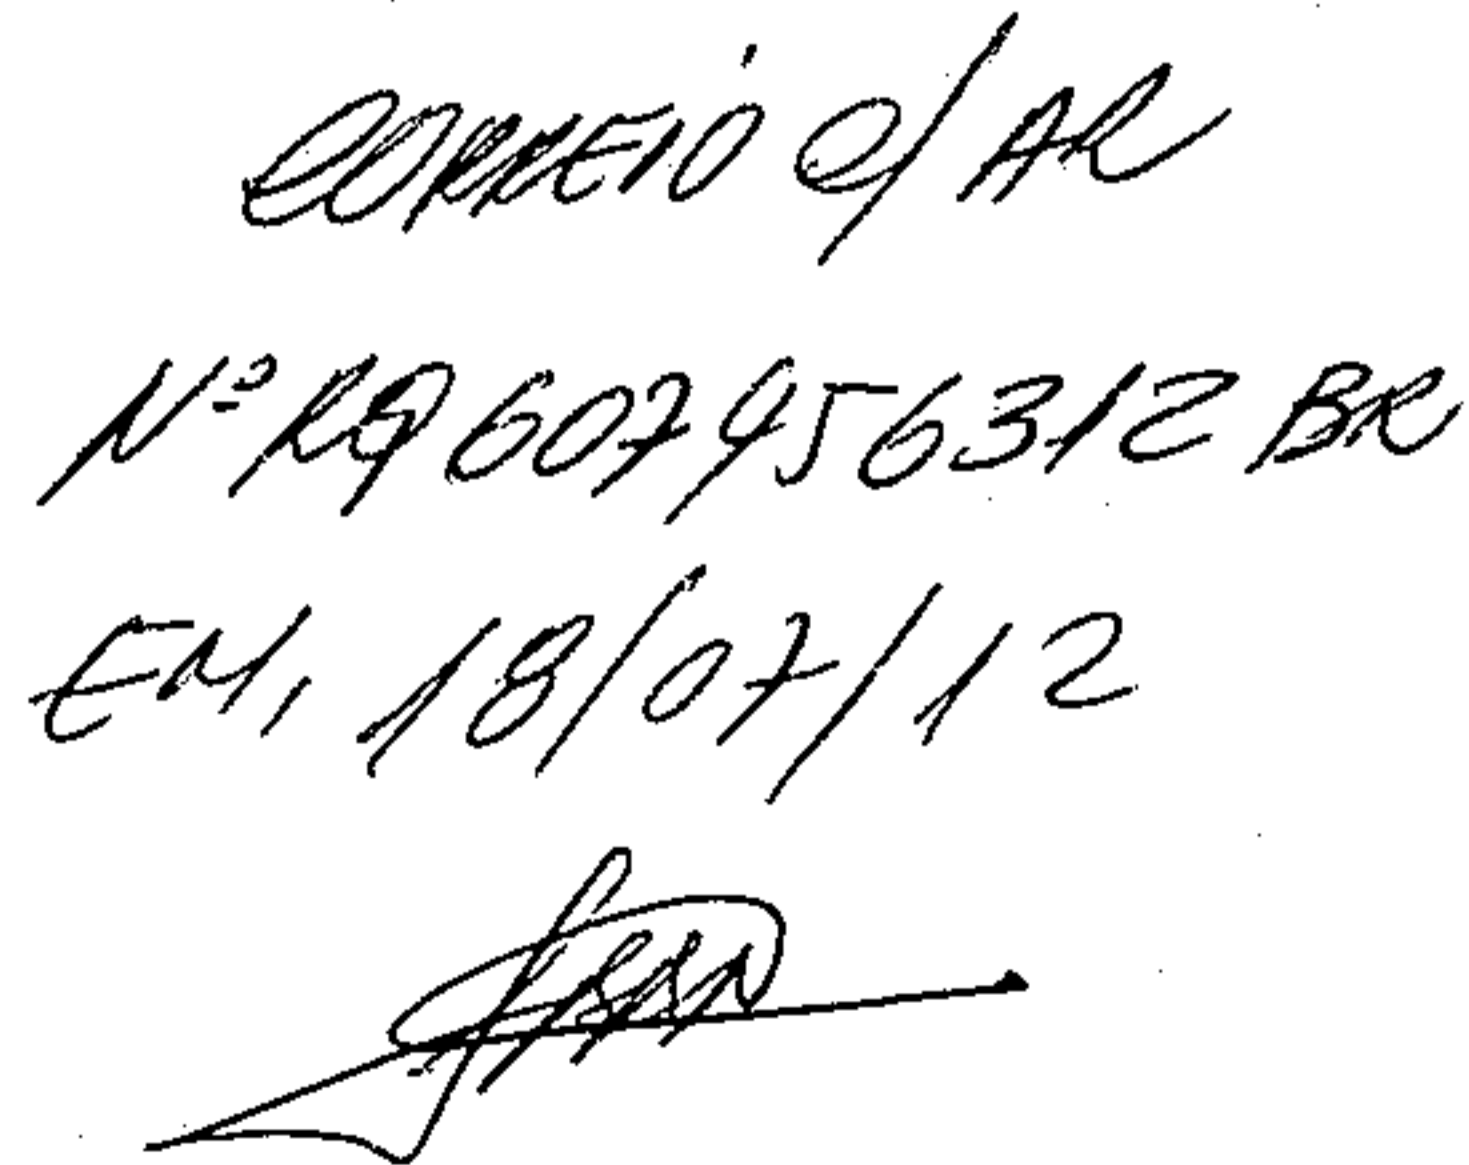 CORREIO C/ AR
Nº RQ 607956312 BR
EM, 18/07/12